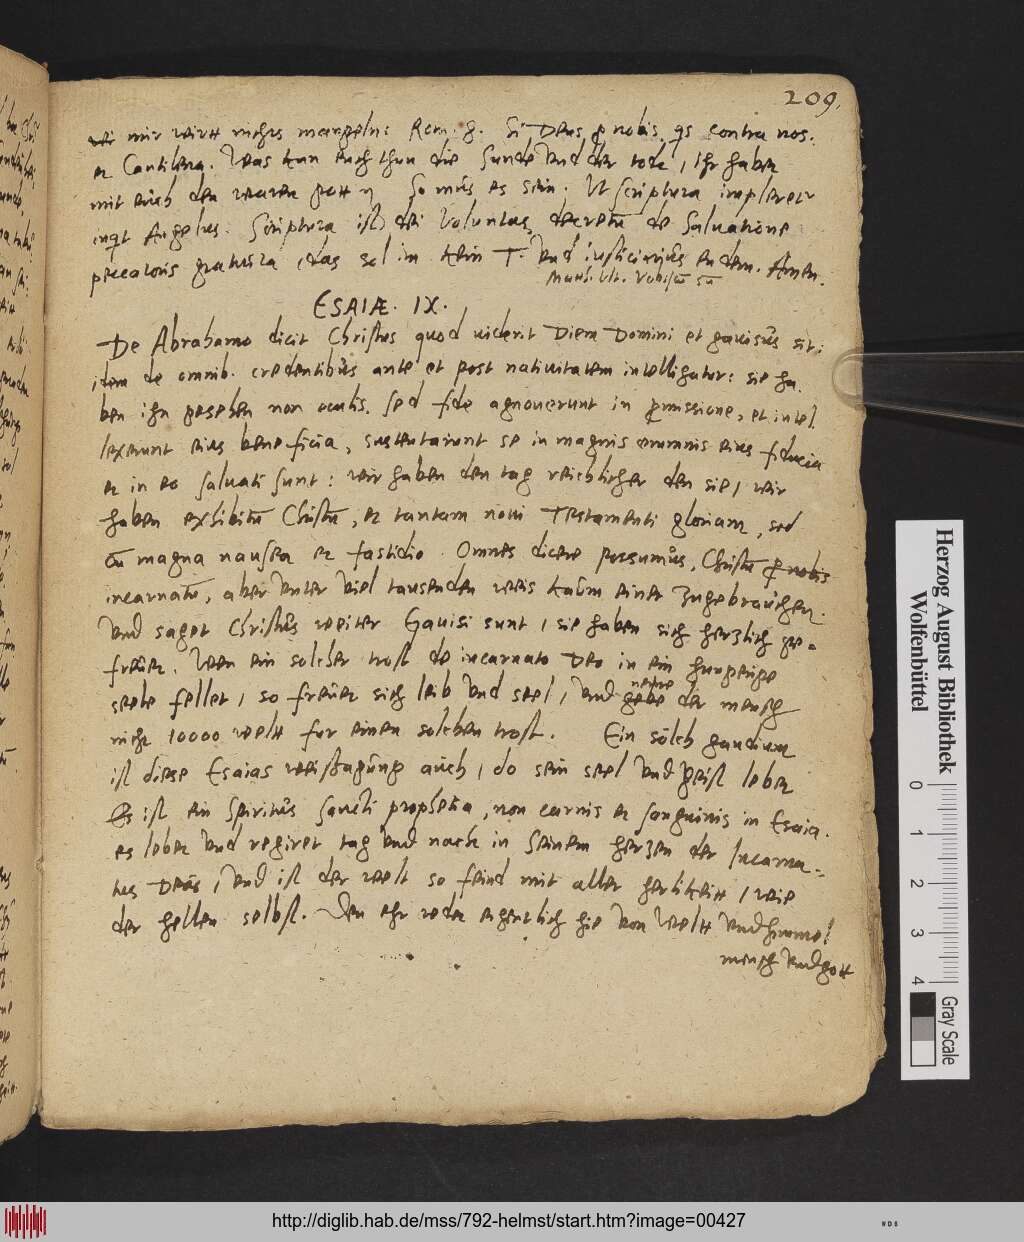 209.
mir wirtt nichts mangeln: Rom. 8. Si Deus ꝓ nobis, qs contra nos.
et Cantilena. Was kan euch thun die Sunde und der tode, Ihr habet
mit euch den waren gott So mus es sein. Ut scriptura impleretr
inqt Angelus. Scriptura ist dei Voluntas, decretū de Saluatione
peccatoris gratuita, das sol im kein T. und iusticiarius enden. Amen.
Matth. ult. Vobiscū sū
ESAIÆ. IX.
De Abrahamo dicit Christus quod uiderit Diem Domini et gauisus sit:
idem de omnib. credentibus ante et post natiuitatem intelligatur: sie ha
ben ihn gesehen non oculis, sed fide agnouerunt in ꝓmissione, et intel
lexerunt eius beneficia, sustentarunt se in magnis erumnis eius fiducia
et in eo saluati sunt: wir haben den tag reichlicher den sie, wir
haben exhibitū Christū, et tantam noui Testamenti gloriam, sed
cū magna nausea et fastidio. Omnes dicere possumus, Christū ꝓ nobis
incarnatū, aber unter viel tausenden weis kaum einer zugebrauchen.
und saget Christus weiter Gauisi sunt, sie haben sich hertzlich ge-
freuet. Wen ein solcher trost de incarnato Deo in ein hungerige
seele fellet, so freuet sich leib und seel, und gebe der mensch
neme
nicht 10000 welt fur einen solchen trost. Ein solch gaudium
ist diese Esaias weissagung auch, do sein seel und geist lebet
Es ist ein Spiritus Sancti propheta, non carnis et sanguinis in Esaia.
es lebet und regiret tag und nacht in seinem hertzen der Incarna-
tus Deus, und ist der welt so feind mit aller herlikeitt, wie
der hellen selbst. Den ehr redet eigentlich hie von Weltt und himmel
mensch und gott
Herzog August Bibliothek
Wolfenbüttel
0 1 2 3 4
Gray Scale
http://diglib.hab.de/mss/792-helmst/start.htm?image=00427